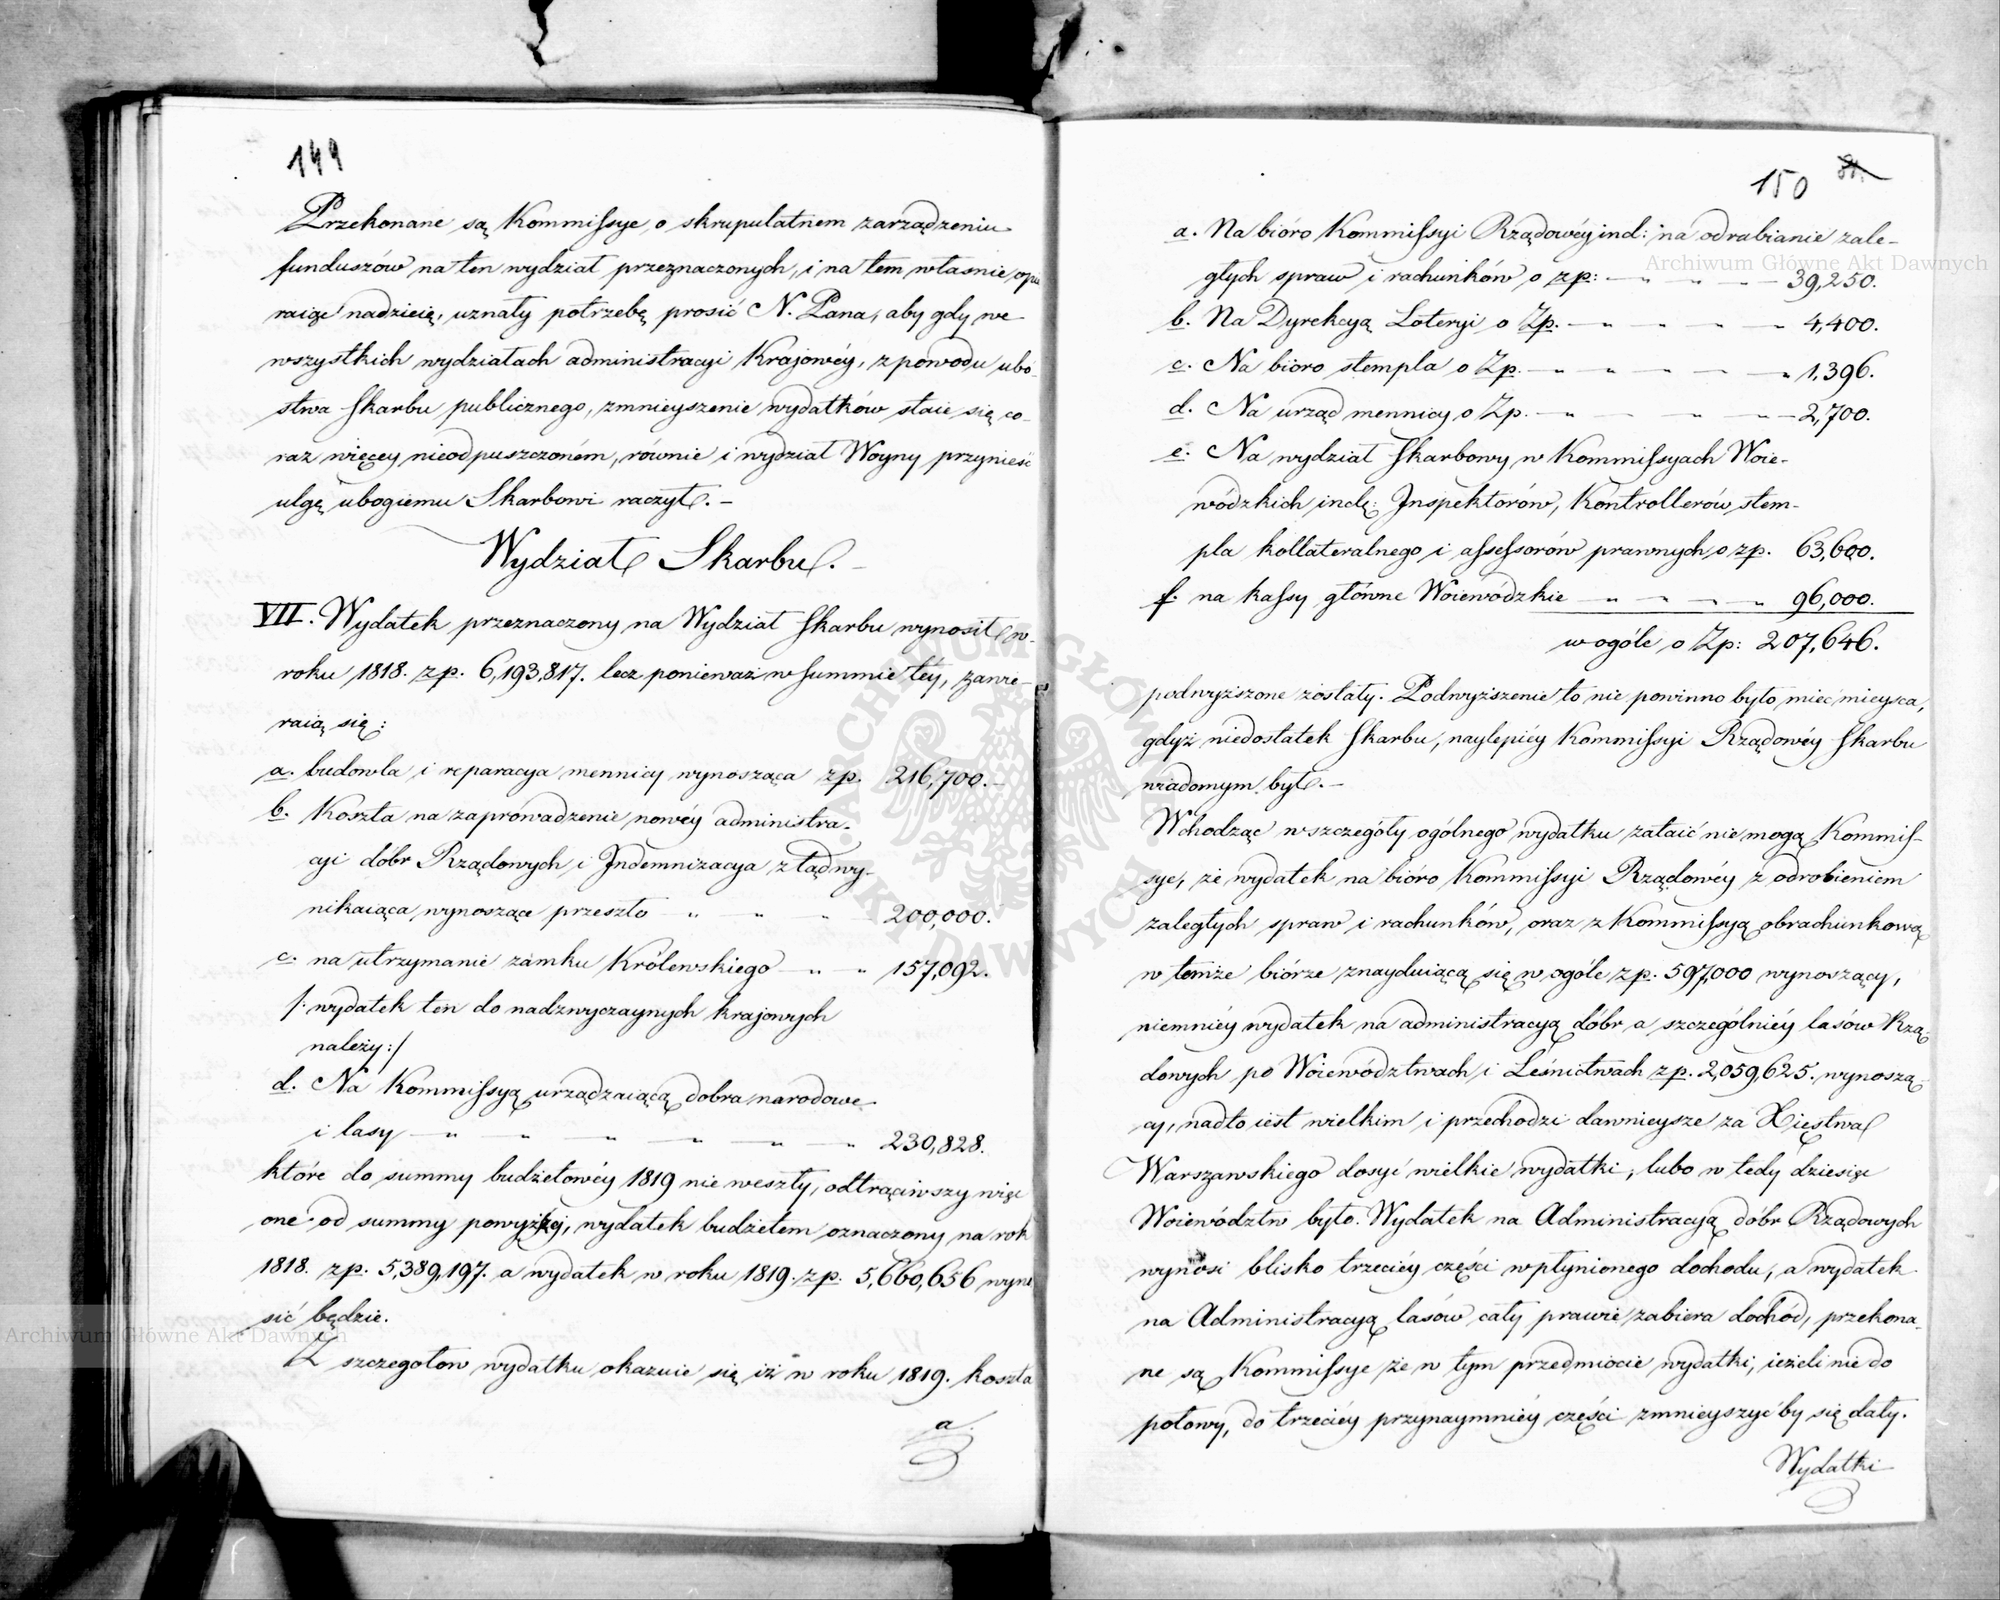 149
Przekonane są Kommissye o skrupulatnem zarządzeniu
funduszów na ten wydział przeznaczonych, i na tem własnie opie
raiąc nadzieię, uznały potrzebę prosić N. Pana, aby gdy we
wszystkich wydziałach administracyi Krajowéy, z powodu ubó-
stwa skarbu publicznego, zmnieyszenie wydatków staie się co-
raz więcey nieodpuszczoném, równie i wydział Woyny przynieść
ulgę ubogiemu Skarbowi raczył. –
Wydział Skarbu. –
VII. Wydatek przeznaczony na Wydział skarbu wynosił w
roku 1818. zp. 6,193,817. lecz ponieważ w summie téy, zawie-
raią się:
a. budowla i reparacya mennicy wynosząca zp. 216,700. –
b. Koszta na zaprowadzenie nowéy administra-
cyi dóbr Rządowych i Indemnizacya z tąd wy-
nikaiąca, wynoszące przeszło – „ – „ – 200,000.
c. na utrzymanie zamku Królewskiego – „ – „ 157,092.
/: wydatek ten do nadzwyczaynych krajowych
należy :/
d. Na Kommissyą urządzaiącą dobra narodowe
i lasy – „ – „ – „ – „ – „ – „ 230,828.
które do summy budżetowéy 1819 nie weszły, odtrąciwszy więc
one od summy powyższéj, wydatek budżetem oznaczony na rok
1818. zp. 5,389,197. a wydatek w roku 1819. zp. 5,660,656 wyno
sić będzie.
Z szczegółow wydatku okazuie się iż w roku 1819. koszta
a.
150 81.
a. Na bióro Kommissyi Rządowéy ind: na odrabianie zale-
głych spraw i rachunków o zp: – „ – „ – 39,250.
b. Na Dyrekcyą Loteryi o Zp. – „ – „ – „ 4,400.
c. Na bióro stempla o Zp. – „ – „ – „ – „ 1,396.
d. Na urząd mennicy o Zp. – „ – „ – „ – 2,700.
e. Na wydział skarbowy w Kommissyach Woie-
wódzkich incl: Inspektorów, Kontrollerów stem-
pla kollateralnego i assessorów prawnych o zp. 63,600.
f. na kassy główne Woiewódzkie – „ – „ – „ 96,000.
w ogóle o Zp: 207,646.
podwyższone zostały. Podwyższenie to nie powinno było mieć mieysca,
gdyż niedostatek skarbu, naylepiéy Kommissyi Rządowéy skarbu
wiadomym był. –
Wchodząc w szczegóły ogólnego wydatku zataić nie mogą Kommis-
sye, że wydatek na bióro Kommissyi Rządowéy z odrobieniem
zaległych spraw i rachunków, oraz z Kommissyą obrachunkową
w temże biórze znayduiącą się w ogóle zp. 597,000 wynoszący,
niemniéy wydatek na administracyą dóbr a szczególniéy lasów Rzą-
dowych po Woiewództwach i Leśnictwach zp. 2,059,625. wynoszą-
cy, nadto iest wielkim i przechodzi dawnieysze za Xięstwa
Warszawskiego dosyć wielkie wydatki, lubo w tedy dziesięć
Woiewództw było. Wydatek na Administracyą dóbr Rządowych
wynosi blisko trzeciéy części wpłynionego dochodu, a wydatek
na Administracyą lasów cały prawie zabiera dochód, przekona-
ne są Kommissye że w tym przedmiocie wydatki, ieżeli nie do
połowy, do trzeciéy przynaymniéy części zmnieyszyć by się dały.
Wydatki
Archiwum Główne Akt Dawnych
Archiwum Główne Akt Dawnych
ARCHIWUM GŁÓWNE AKT DAWNYCH